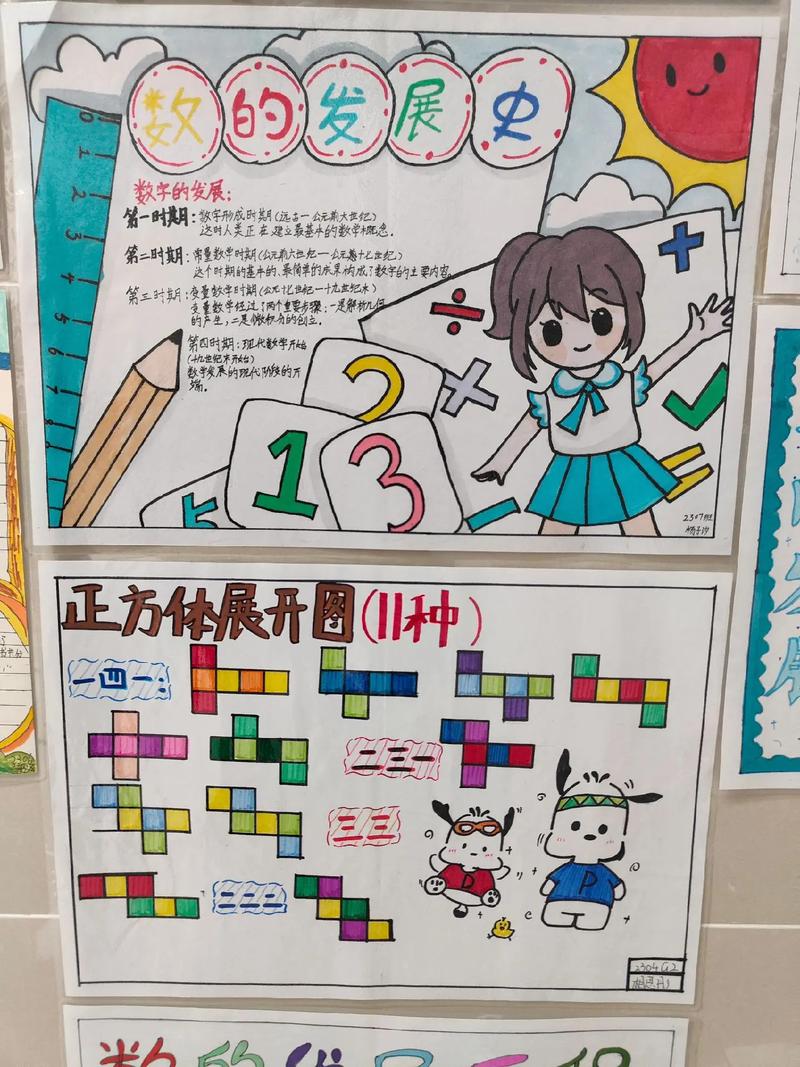 数的发展史
0
1
2
3
4
5
6
7
数字的发展：
第一时期：数字形成时期(远古一公元前六世纪)
这时人类正在建立最基本的数学概念。
第二时期：常量数学时期(公元前六世纪一公元十七世纪)
这个时期的基本的、最简单的成果构成了数学的主要内容。
第三时期：变量数学时期(公元十七世纪一十九世纪末)
变量数学经过了两个重要步骤：一是解析几何
的产生，二是微积分的创立。
第四时期：现代数学开始
(十九世纪末开始)
数学发展的现代阶段的开
端。
÷
+
×
2
1
3
5
-
=
2307班
正方体展开图(11种)
一四一：
二三一
三三
二二二
D
P
2304
数的发展历程